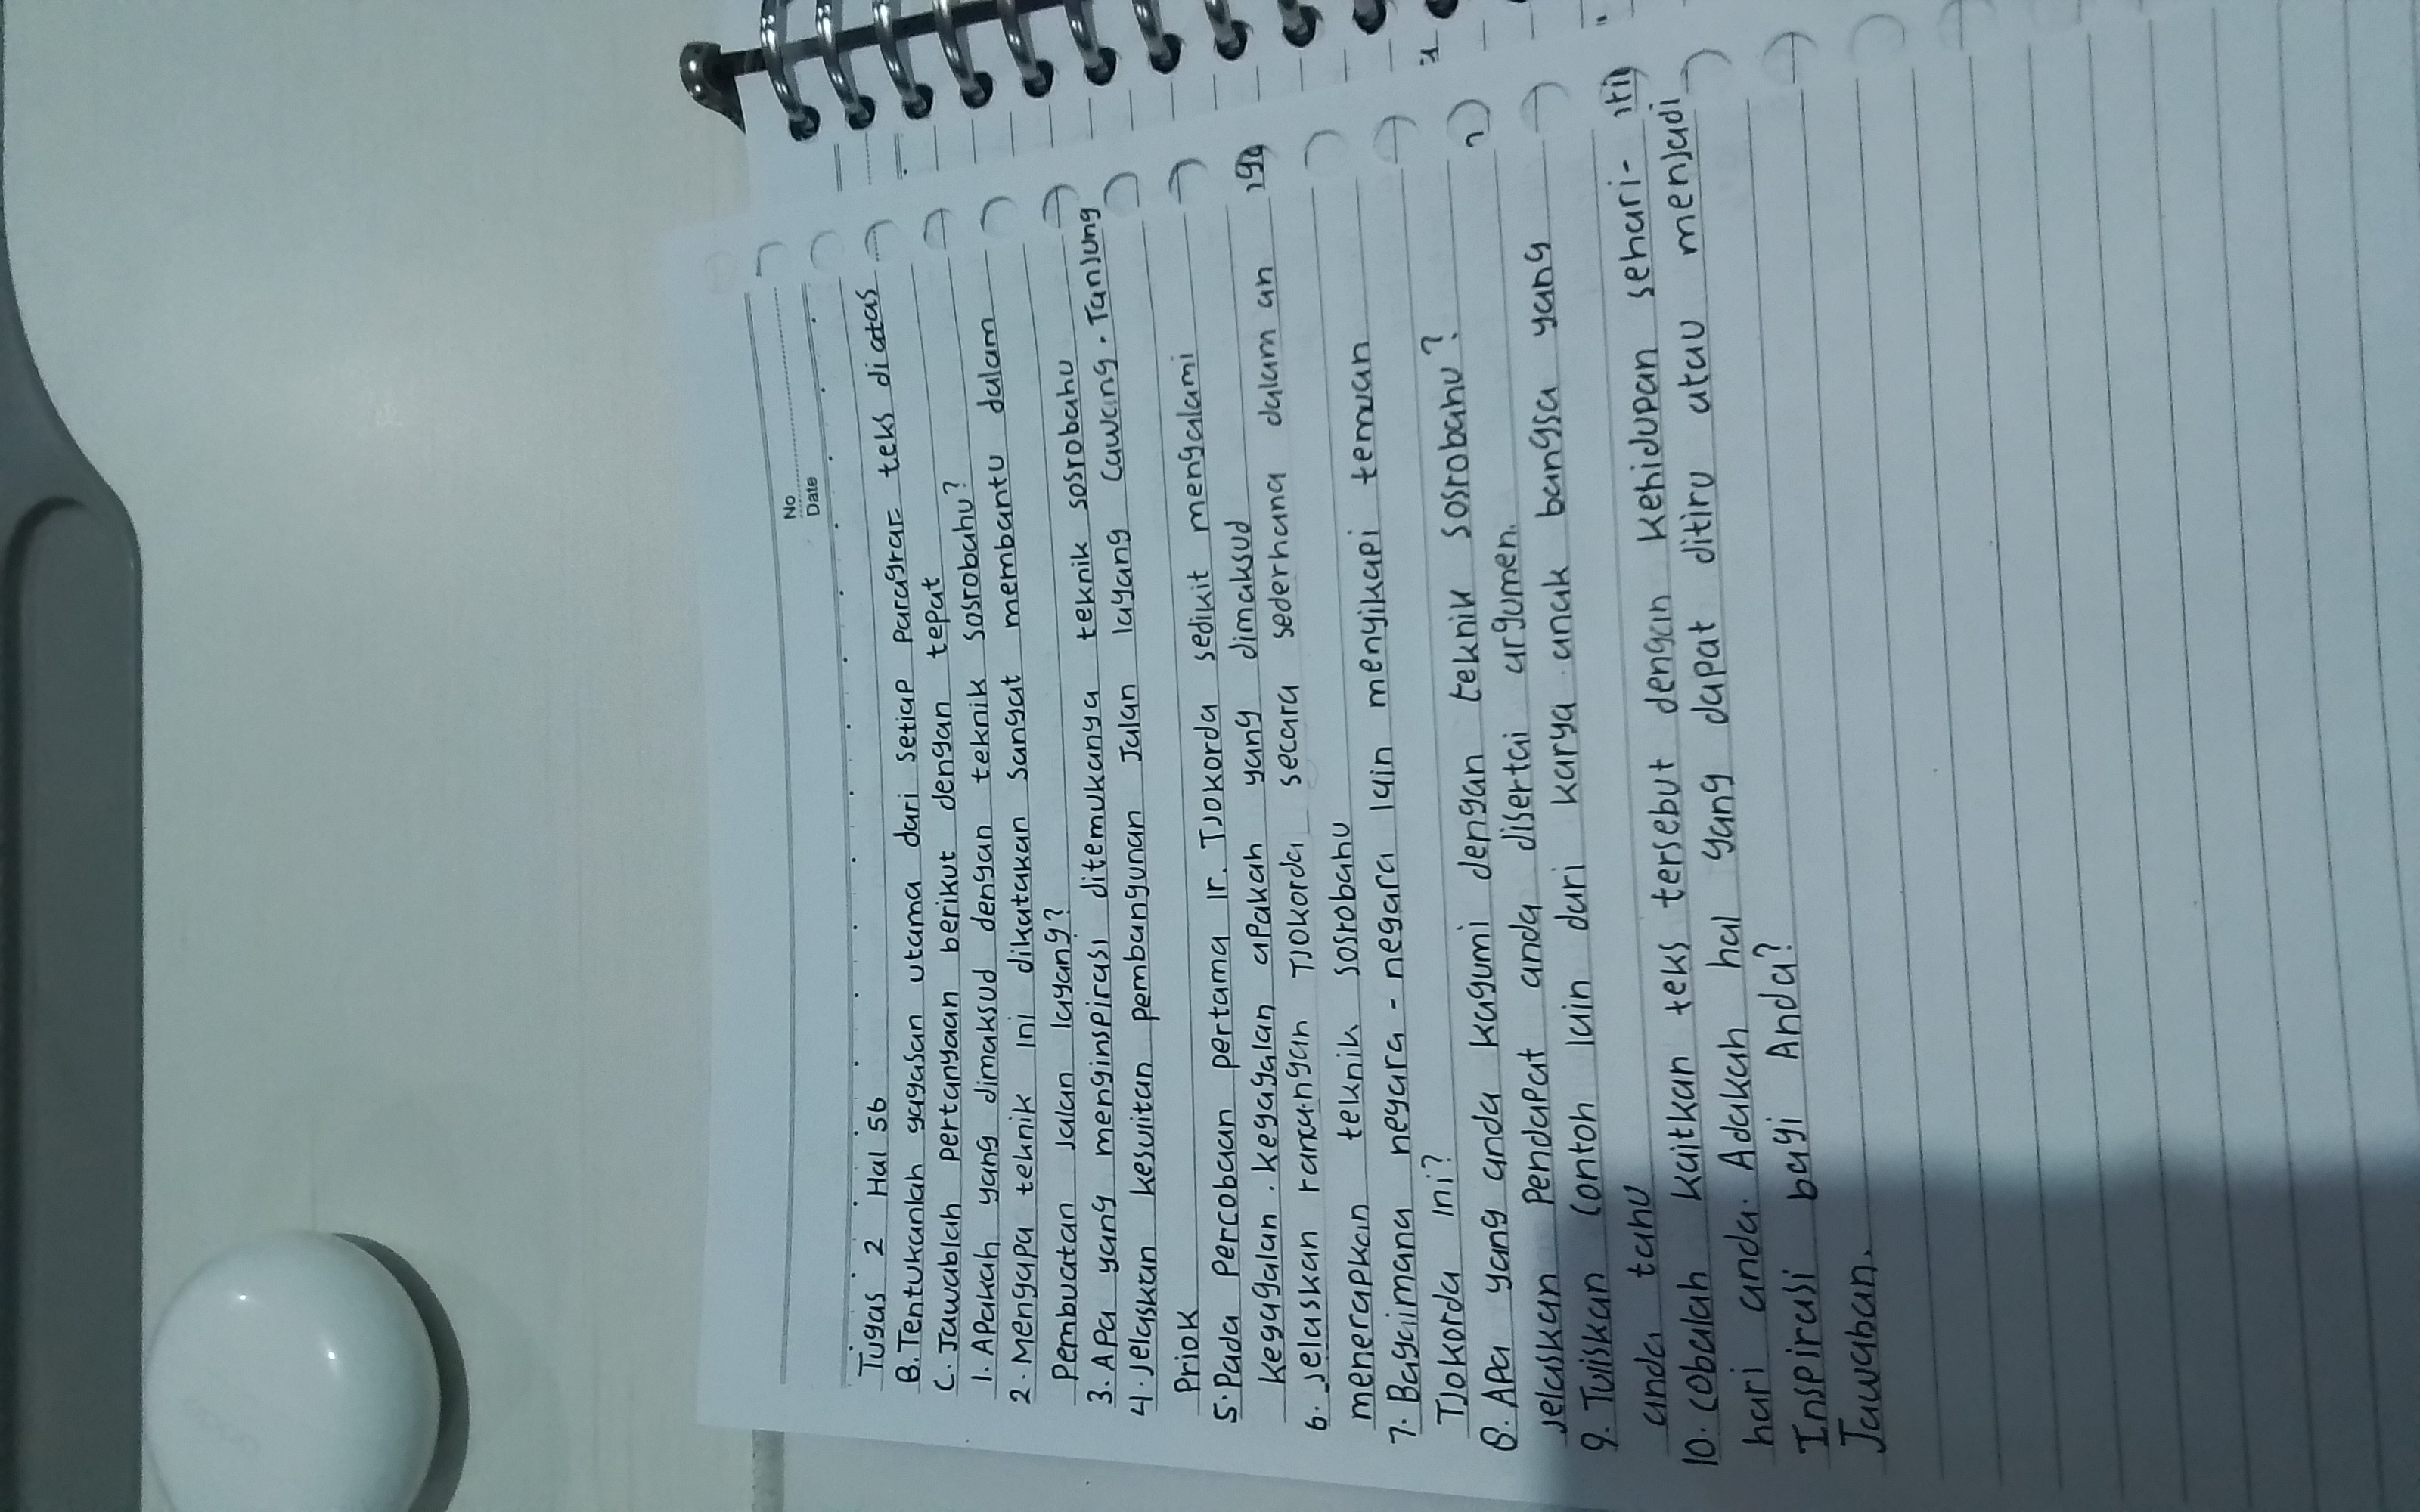 No
Date
Tugas 2 Hal 56
B. Tentukanlah gagasan utama dari setiap paragraf teks diatas
C. Jawablah pertanyaan berikut dengan tepat
1. Apakah yang dimaksud dengan teknik sosrobahu?
2. Mengapa teknik ini dikatakan sangat membantu dalam
Pembuatan Jalan layang?
3. Apa yang menginspirasi ditemukanya teknik sosrobahu
4. Jelaskan kesulitan pembangunan Jalan layang Cawang. Tanjung
Priok
5. Pada Percobaan pertama Ir. TJokorda sedikit mengalami
kegagalan. kegagalan apakah yang dimaksud
6. Jelaskan rancangan TJokorda secara sederhana dalam
menerapkan teknik sosrobahu
7. Bagaimana negara-negara lain menyikapi temuan
TJokorda ini?
8. Apa yang anda kagumi dengan teknik sosrobahu?
Jelaskan Pendapat anda disertai argumen.
9. Tuliskan Contoh lain dari karya anak bangsa yang
anda tahu
10. Cobalah kaitkan teks tersebut dengan kehidupan sehari-
hari anda. Adakah hal yang dapat ditiru atau menjadi
Inspirasi bagi Anda?
Jawaban.